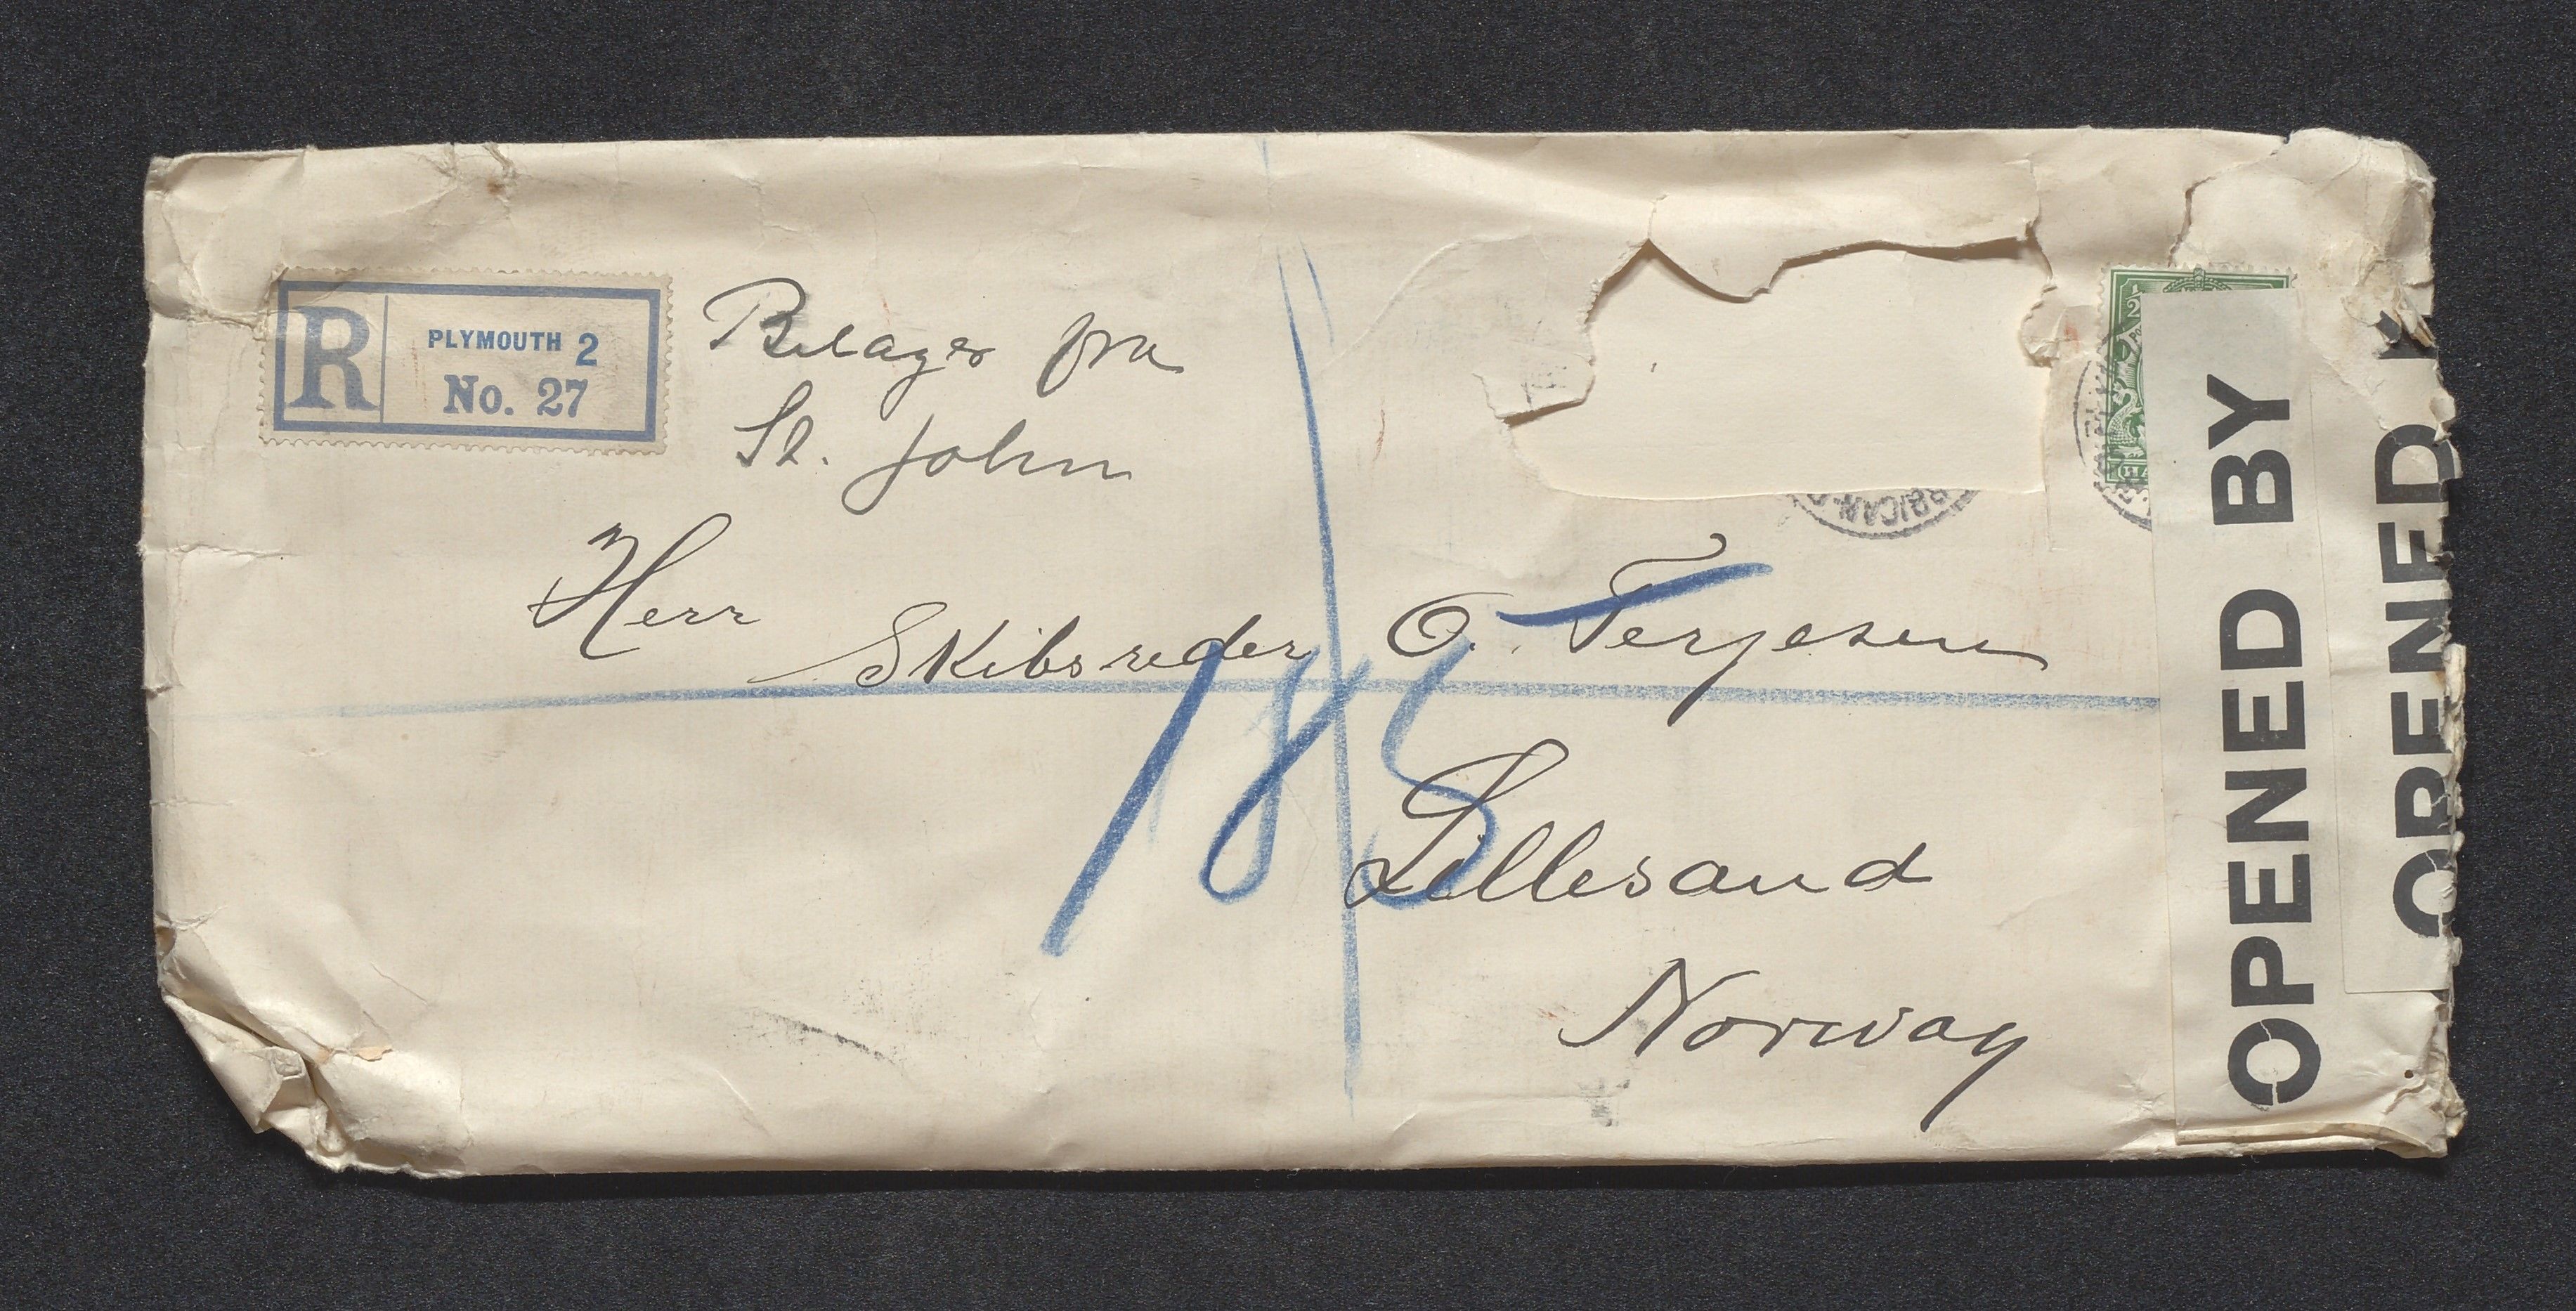 R PLYMOUTH 2
No. 27
Bilager fra
St. John
Herr
Skibsreder O. Terjesen
185
Lillesand
Norway
OPENED BY
OPENED